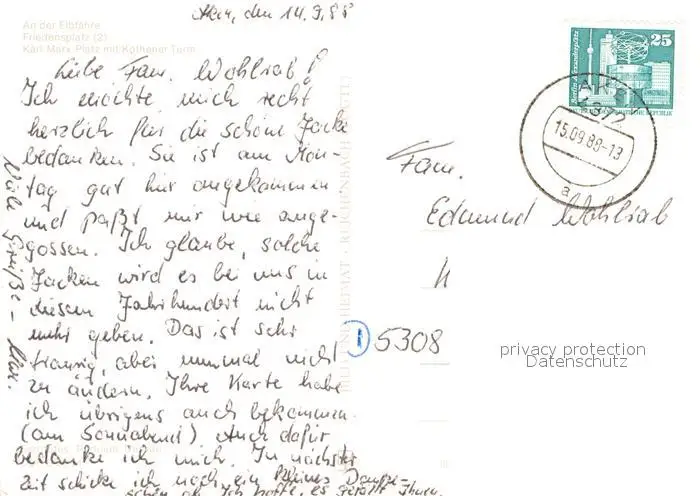 Aken, den 14.9.88
An der Elbfähre
Friedensplatz (2)
Karl Marx Platz mit Köthener Turm
Liebe Fam. Wohlrab!
Ich möchte mich recht
herzlich für die schöne Jacke
bedanken. Sie ist am Mon-
tag gut hier angekommen
und paßt mir wie ange-
gossen. Ich glaube, solche
Jacken wird es bei uns in
diesem Jahrhundert nicht
mehr geben. Das ist sehr
traurig, aber nunmal nicht
zu ändern. Ihre Karte habe
ich übrigens auch bekommen
(am Sonnabend). Auch dafür
bedanke ich mich. In nächster
Zeit schicke ich noch ein kleines Danke-
schön ab. Ich hoffe, es gefällt Ihnen.
Viele Grüße –
BILD UND HEIMAT · REICHENBACH
25
AKEN
4372
15.09.88-13
a
Fam.
Edmund Wohlrab
5308
privacy protection
Datenschutz